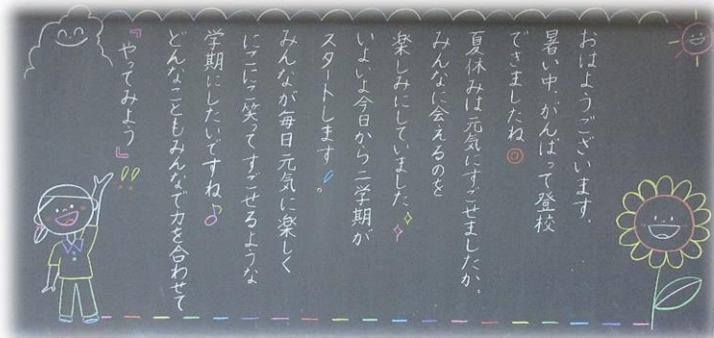 おはようございます。
暑い中、がんばって登校
できましたね
夏休みは元気にすごせましたか。
みんなに会えるのを
楽しみにしていました
いよいよ今日から二学期が
スタートします!
みんなが毎日元気に楽しく
にこにこ笑ってすごせるような
学期にしたいですね♪
どんなこともみんなで力を合わせて
『やってみよう』!!